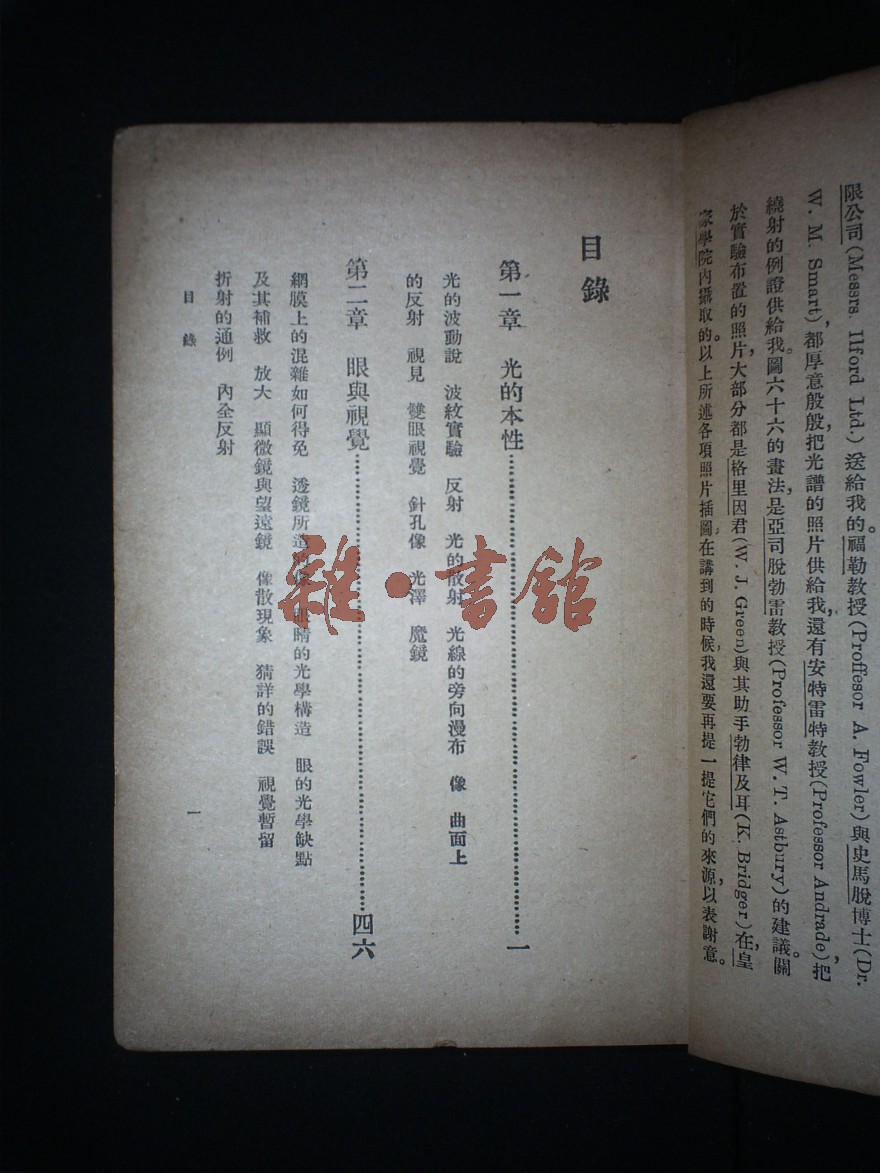 限公司(Messrs. Ilford Ltd.)送給我的。福勒教授(Proffesor A. Fowler)與史馬脫博士(Dr.
W. M. Smart),都厚意殷殷,把光譜的照片供給我,還有安特雷特教授(Professor Andrade),把
繞射的例證供給我。圖六十六的畫法,是亞司脫勃雷教授(Professor W. T. Astbury)的建議。關
於實驗布置的照片,大部分都是格里因君(W. J. Green)與其助手勃律及耳(K. Bridger)在皇
家學院內攝取的。以上所述各項照片插圖,在講到的時候,我還要再提一提它們的來源,以表謝意。
目錄
第一章 光的本性……一
光的波動說 波紋實驗 反射 光的散射 光線的旁向漫布 像 曲面上
的反射 視見 雙眼視覺 針孔像 光澤 魔鏡
第二章 眼與視覺……四六
網膜上的混雜如何得免 透鏡所造的像 眼睛的光學構造 眼的光學缺點
及其補救 放大 顯微鏡與望遠鏡 像散現象 猜詳的錯誤 視覺暫留
折射的通例 內全反射
目錄
一
雜·書館